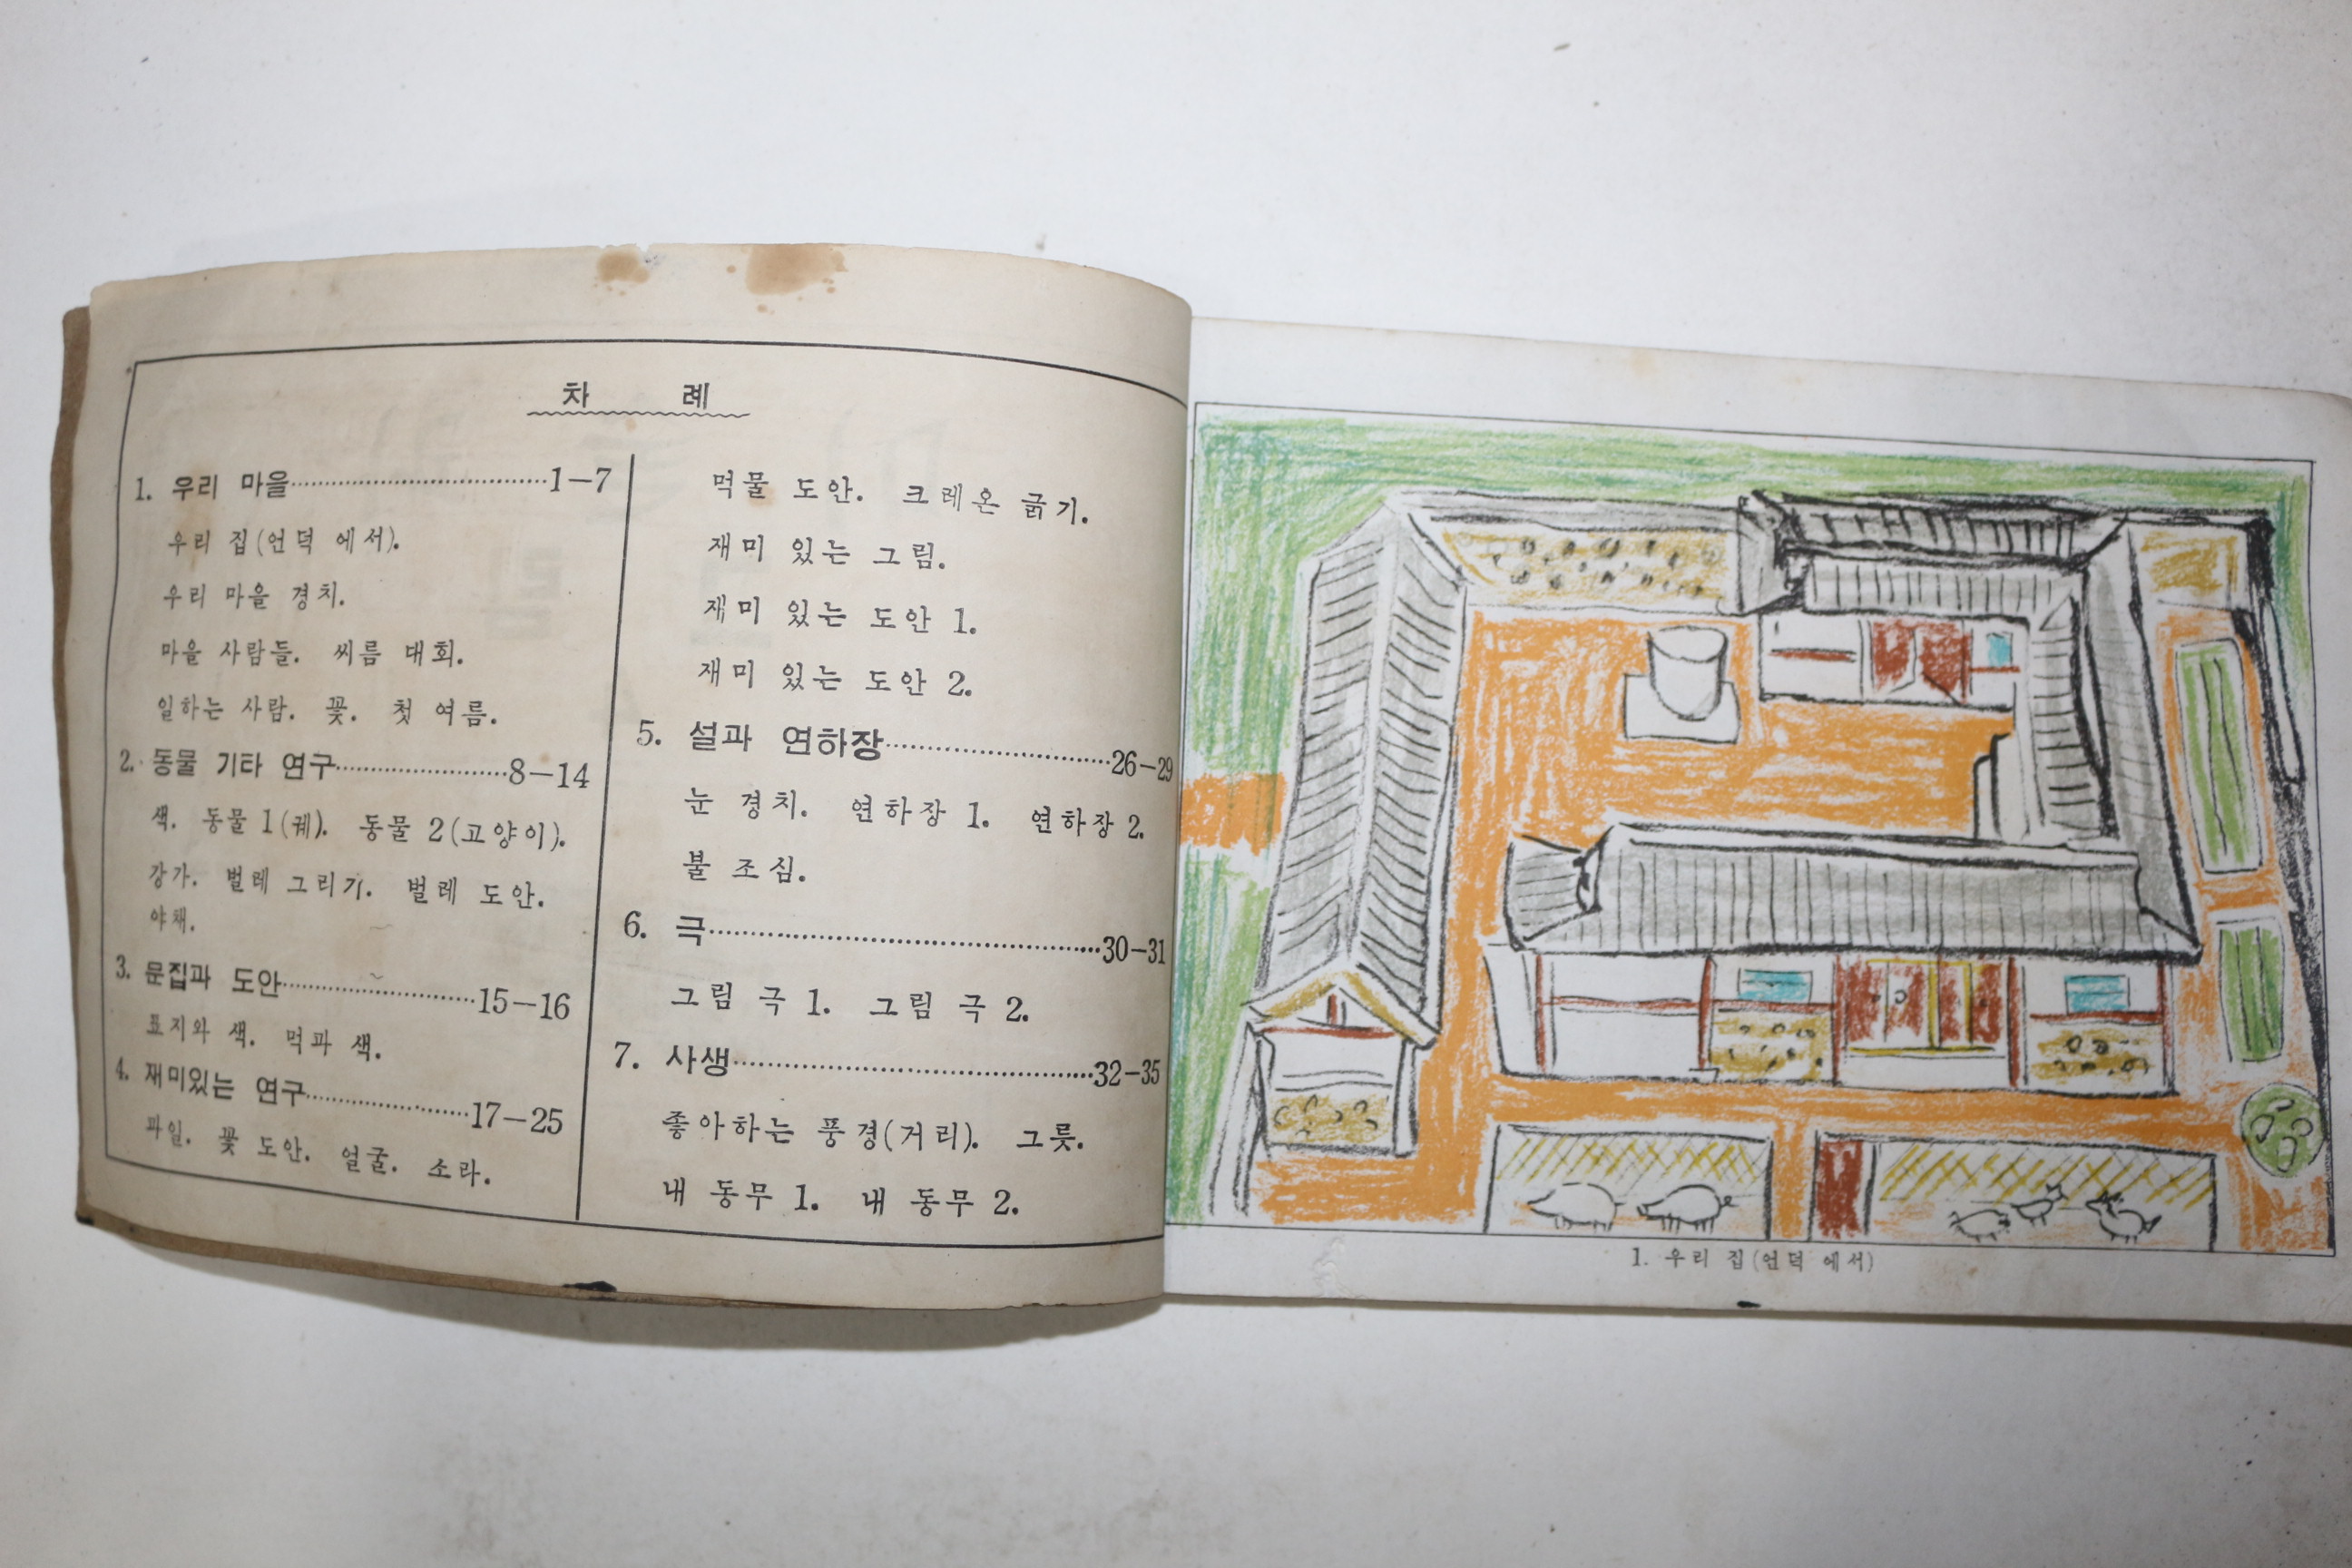 차 례
1. 우리 마을 1-7
우리 집(언덕 에서).
우리 마을 경치.
마을 사람들. 씨름 대회.
일하는 사람. 꽃. 첫 여름.
2. 동물 기타 연구 8-14
색. 동물 1(궤). 동물 2(고양이).
강가. 벌레 그리기. 벌레 도안.
야채.
3. 문집과 도안 15-16
표지와 색. 먹과 색.
4. 재미있는 연구 17-25
파일. 꽃 도안. 얼굴. 소라.
먹물 도안. 크레온 긁기.
재미 있는 그림.
재미 있는 도안 1.
재미 있는 도안 2.
5. 설과 연하장 26-29
눈 경치. 연하장 1. 연하장 2.
불 조심.
6. 극 30-31
그림 극 1. 그림 극 2.
7. 사생 32-35
좋아하는 풍경(거리). 그릇.
내 동무 1. 내 동무 2.
1. 우리 집(언덕 에서)